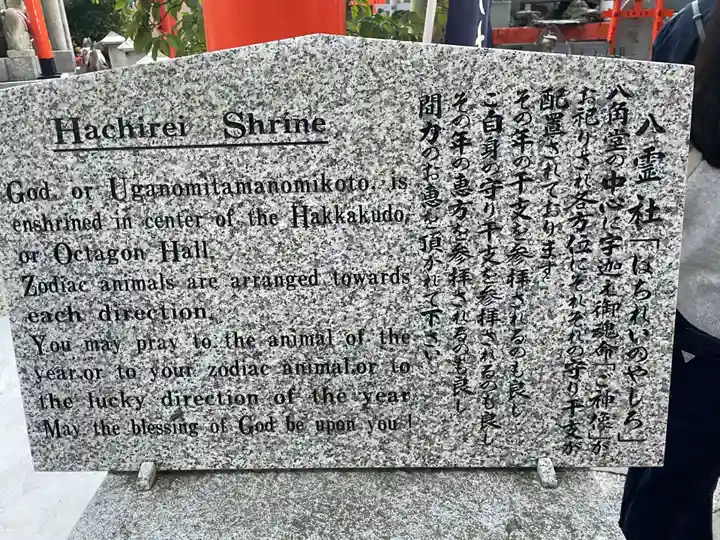 Hachirei Shrine
God, or Uganomitamanomikoto, is
enshrined in center of the Hakkakudo,
or Octagon Hall.
Zodiac animals are arranged towards
each direction.
You may pray to the animal of the
year,or to your zodiac animal,or to
the lucky direction of the year
May the blessing of God be upon you!
八霊社「はちれいのやしろ」
八角堂の中心に宇迦之御魂命「ご神像」が
お祀りされ各方位にそれぞれの守り干支が
配置されております
その年の干支を参拝されるのも良し
ご自身の守り干支を参拝されるのも良し
その年の恵方を参拝されるのも良し
開力のお恵を頂かれて下さい